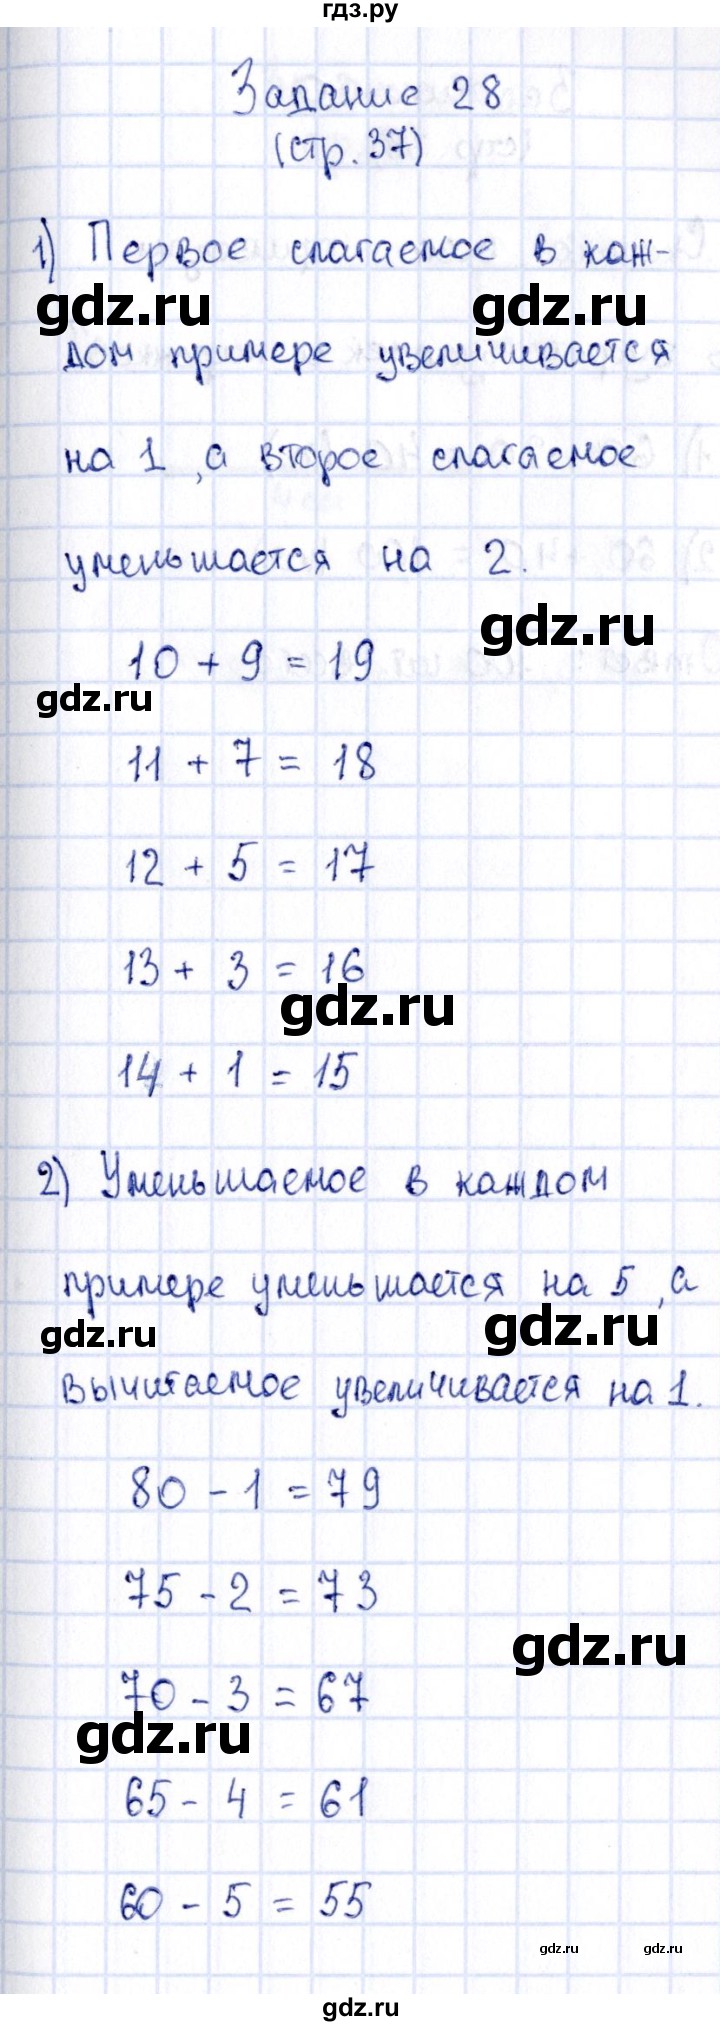 гдз.ру
Задание 28
(стр. 37)
1) Первое слагаемое в каж-
gdz.ru gdz.ru
дом примере увеличивается
на 1, а второе слагаемое
уменьшается на 2.
gdz.ru
10 + 9 = 19
gdz.ru
11 + 7 = 18
12 + 5 = 17
13 + 3 = 16
gdz.ru
14 + 1 = 15
2) Уменьшаемое в каждом
примере уменьшается на 5, а
gdz.ru gdz.ru
вычитаемое увеличивается на 1.
80 - 1 = 79
75 - 2 = 73
gdz.ru
70 - 3 = 67
gdz.ru
65 - 4 = 61
60 - 5 = 55
gdz.ru gdz.ru
gdz.ru